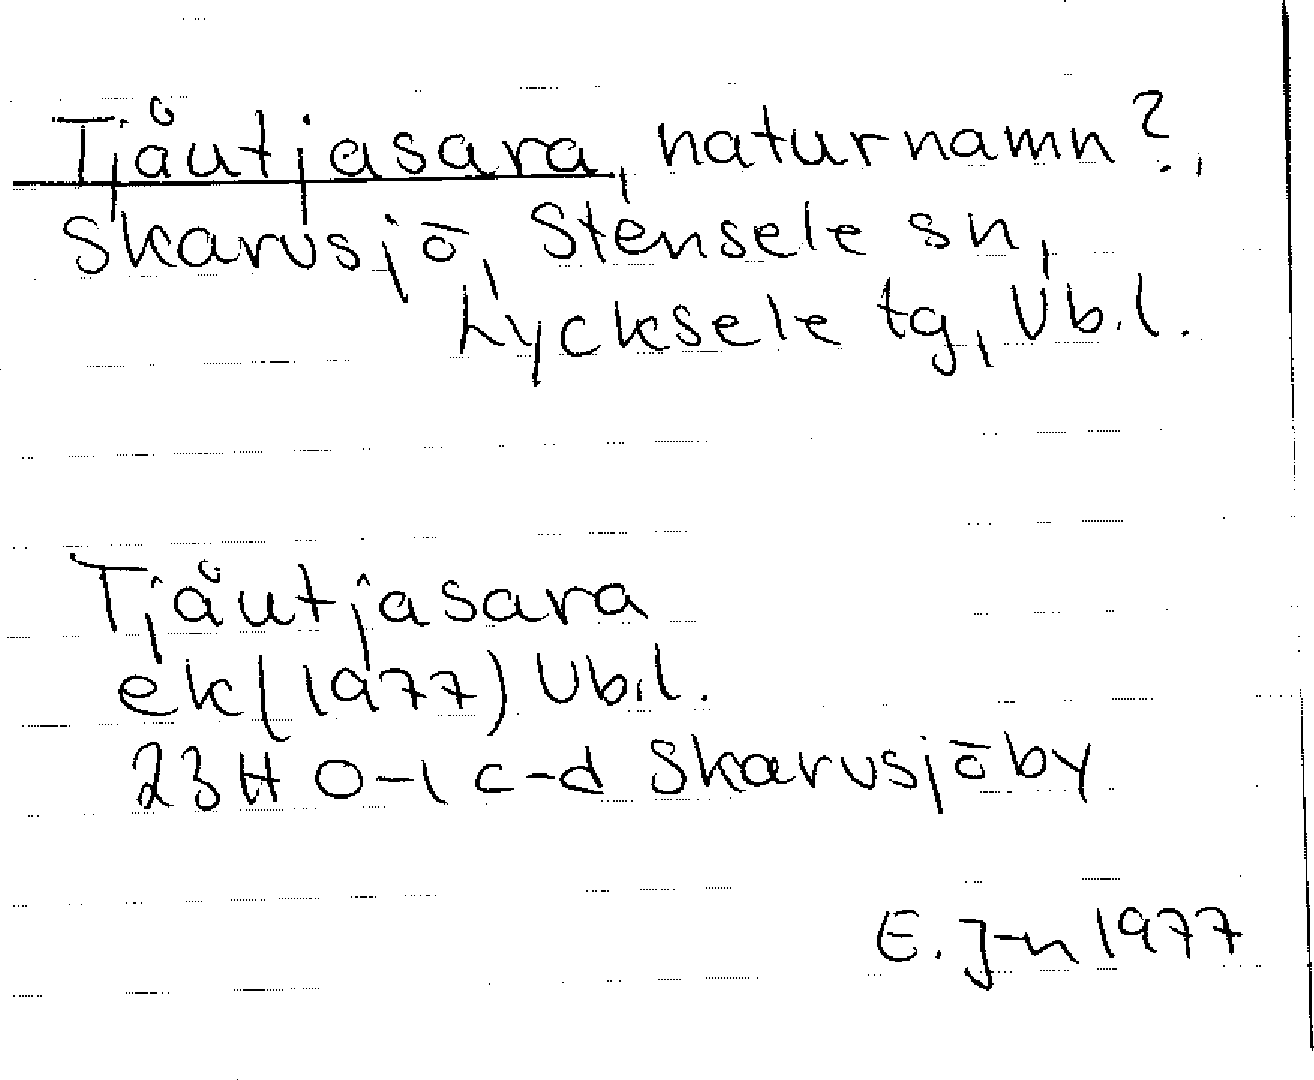 Tjåutjasara, naturnamn?,
Skarvsjö, Stensele sn,
Lycksele tg, Vb.l.
Tjåutjasara
ek (1977) Vb.l.
23H 0-1 c-d Skarvsjöby
E. J-n 1977